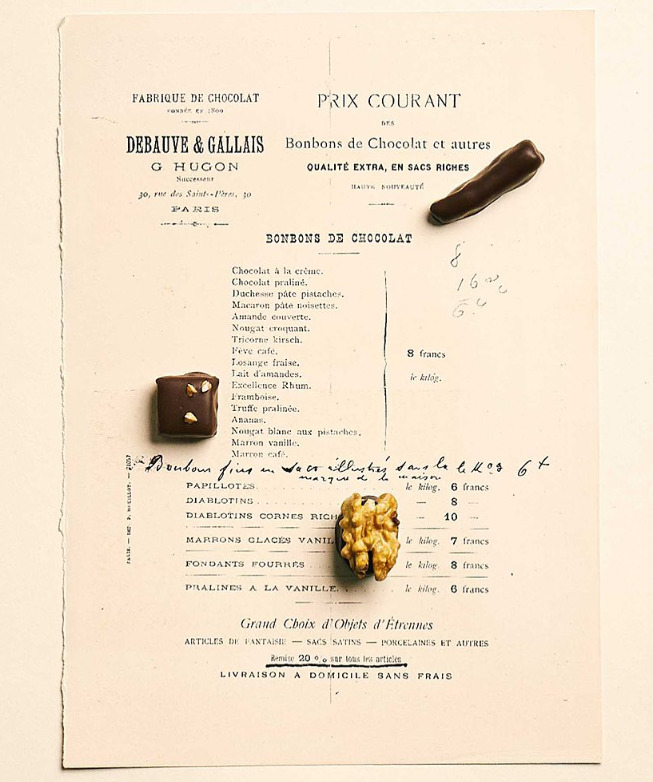 FABRIQUE DE CHOCOLAT
FONDÉE EN 1800
DEBAUVE & GALLAIS
G HUGON
Successeur
30, rue des Saints-Pères, 30
PARIS
PRIX COURANT
DES
Bonbons de Chocolat et autres
QUALITÉ EXTRA, EN SACS RICHES
HAUTE NOUVEAUTÉ
BONBONS DE CHOCOLAT
Chocolat à la crème.
Chocolat praliné.
Duchesse pâte pistaches.
Macaron pâte noisettes.
Amande couverte.
Nougat croquant.
Tricorne kirsch.
Fève café.
Losange fraise.
Lait d'amandes.
Excellence Rhum.
Framboise.
Truffe pralinée.
Ananas.
Nougat blanc aux pistaches.
Marron vanille.
Marron café.
8 francs
le kilog.
8
Bonbons fins en sacs illustrés dans la le K° 6
marque de la maison
PAPILLOTES le kilog. 6 francs
DIABLOTINS — 8 —
DIABLOTINS CORNES RICH — 10 —
MARRONS GLACÉS VANIL le kilog. 7 francs
FONDANTS FOURRÉS le kilog. 8 francs
PRALINES A LA VANILLE le kilog. 6 francs
Grand Choix d'Objets d'Étrennes
ARTICLES DE FANTAISIE — SACS SATINS — PORCELAINES ET AUTRES
Remise 20 % sur tous les articles
LIVRAISON A DOMICILE SANS FRAIS
PARIS. — IMP. P.